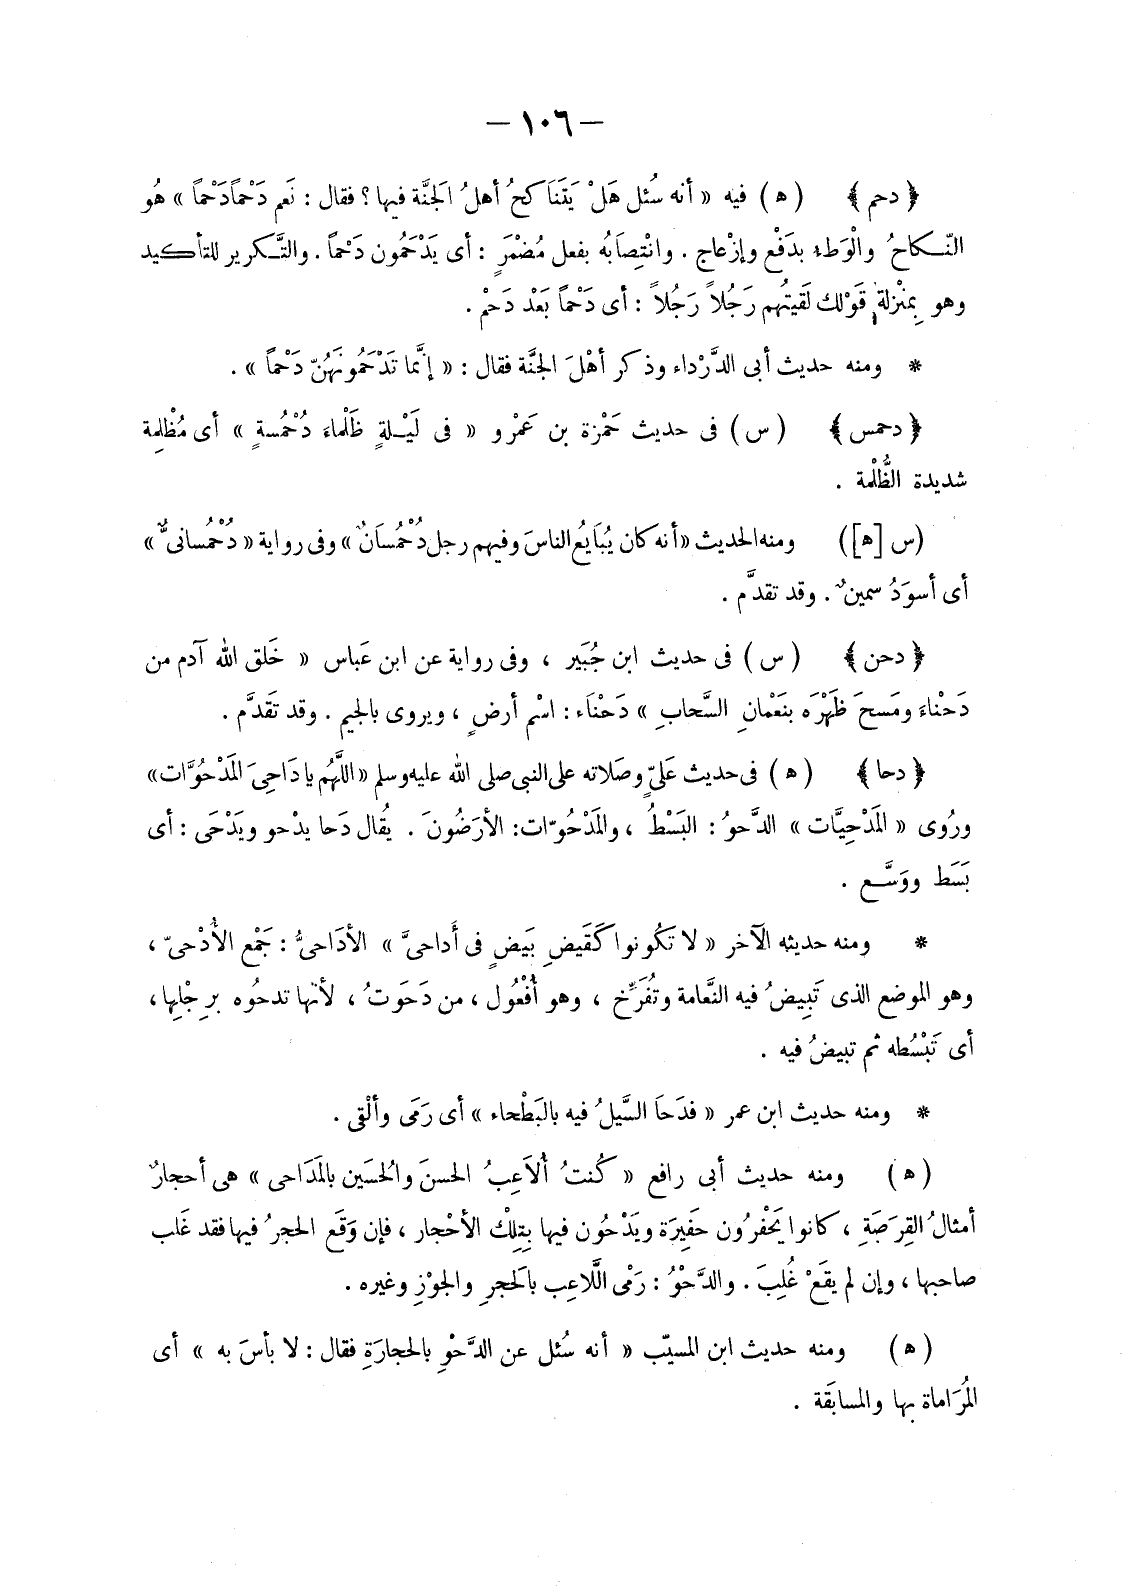 — ١٠٦ —
﴿ دحم ﴾ ( ه ) فيه « أنه سُئل هَلْ يَتَنَاكحُ أهلُ الجَنَّة فيها ؟ فقال : نَعم دَحْماً دَحْماً » هُو
النّـكاحُ والْوَطء بدَفْع وإزْعاج . وانْتِصَابُه بفعل مُضْمَرٍ : أى يَدْحَمُون دَحْماً . والتَّـكرير للتأكيد
وهو بِمنْزلة قَوْلك لَقيتُهم رَجُلاً رَجُلاً : أى دَحْماً بَعْد دَحْم .
* ومنه حديث أبى الدَّرْداء وذكر أهْلَ الجنَّة فقال : « إنَّما تَدْحَمُونَهُنّ دَحْماً » .
﴿ دحمس ﴾ ( س ) فى حديث حَمْزة بن عَمْرو « فى لَيْـلةٍ ظَلْماءَ دُحْمُسةٍ » أى مُظْلِمة
شديدة الظُّلْمة .
(س [ه]) ومنه الحديث « أنه كان يُبَايُع الناسَ وفيهم رجل دُحْمُسَانٌ » وفى رواية « دُحْمُسانىٌّ »
أى أسوَدُ سمينٌ . وقد تقدَّم .
﴿ دحن ﴾ ( س ) فى حديث ابن جُبَير ، وفى رواية عن ابن عَباس « خَلق الله آدم من
دَحْناءَ ومَسحَ ظَهْرَه بنَعْمانِ السَّحابِ » دَحْنَاء : اسْم أرضٍ ، ويروى بالجيم . وقد تَقدَّم .
﴿ دحا ﴾ ( ه ) فى حديث عَلىّ وصَلاته على النبى صلى الله عليه وسلم « اللَّهُم يا دَاحِىَ المَدْحُوَّات »
ورُوى « المَدْحِيَّات » الدَّحوُ : البَسْطُ ، والمَدْحُوّات : الأرَضُونَ . يُقال دَحا يدْحو ويَدْحَى : أى
بَسَط ووَسَّـع .
* ومنه حديثه الآخر « لا تَكُونوا كَقَيضِ بَيضٍ فى أَداحىَّ » الأدَاحىُّ : جَمْع الأُدْحىّ ،
وهو الموضع الذى تَبِيضُ فيه النَّعامة وتُفَرِّخ ، وهو أُفْعُول ، من دَحَوتُ ، لأنّها تدحُوه برِجْلِها ،
أى تَبْسُطه ثم تبيضُ فيه .
* ومنه حديث ابن عمر « فدَحَا السَّيلُ فيه بالبَطْحاء » أى رَمَى وألْقى .
( ه ) ومنه حديث أبى رافع « كُنتُ أُلاَعِبُ الحسنَ والحُسَين بالمَدَاحى » هى أحجارٌ
أمثالُ القِرَصَةِ ، كانوا يَحْفرُون حَفِيرَة ويَدْحُون فيها بِتِلْك الأحْجار ، فإن وَقَع الحجرُ فيها فقد غَلب
صاحبها ، وإن لم يقَعْ غُلِبَ . والدَّحْوُ : رَمْى اللَّاعِب بالحَجرِ والجوْزِ وغيره .
( ه ) ومنه حديث ابن المسيّب « أنه سُئل عن الدَّحْوِ بالحجارَةِ فقال : لا بأسَ به » أى
المُرَاماة بها والمسابَقة .